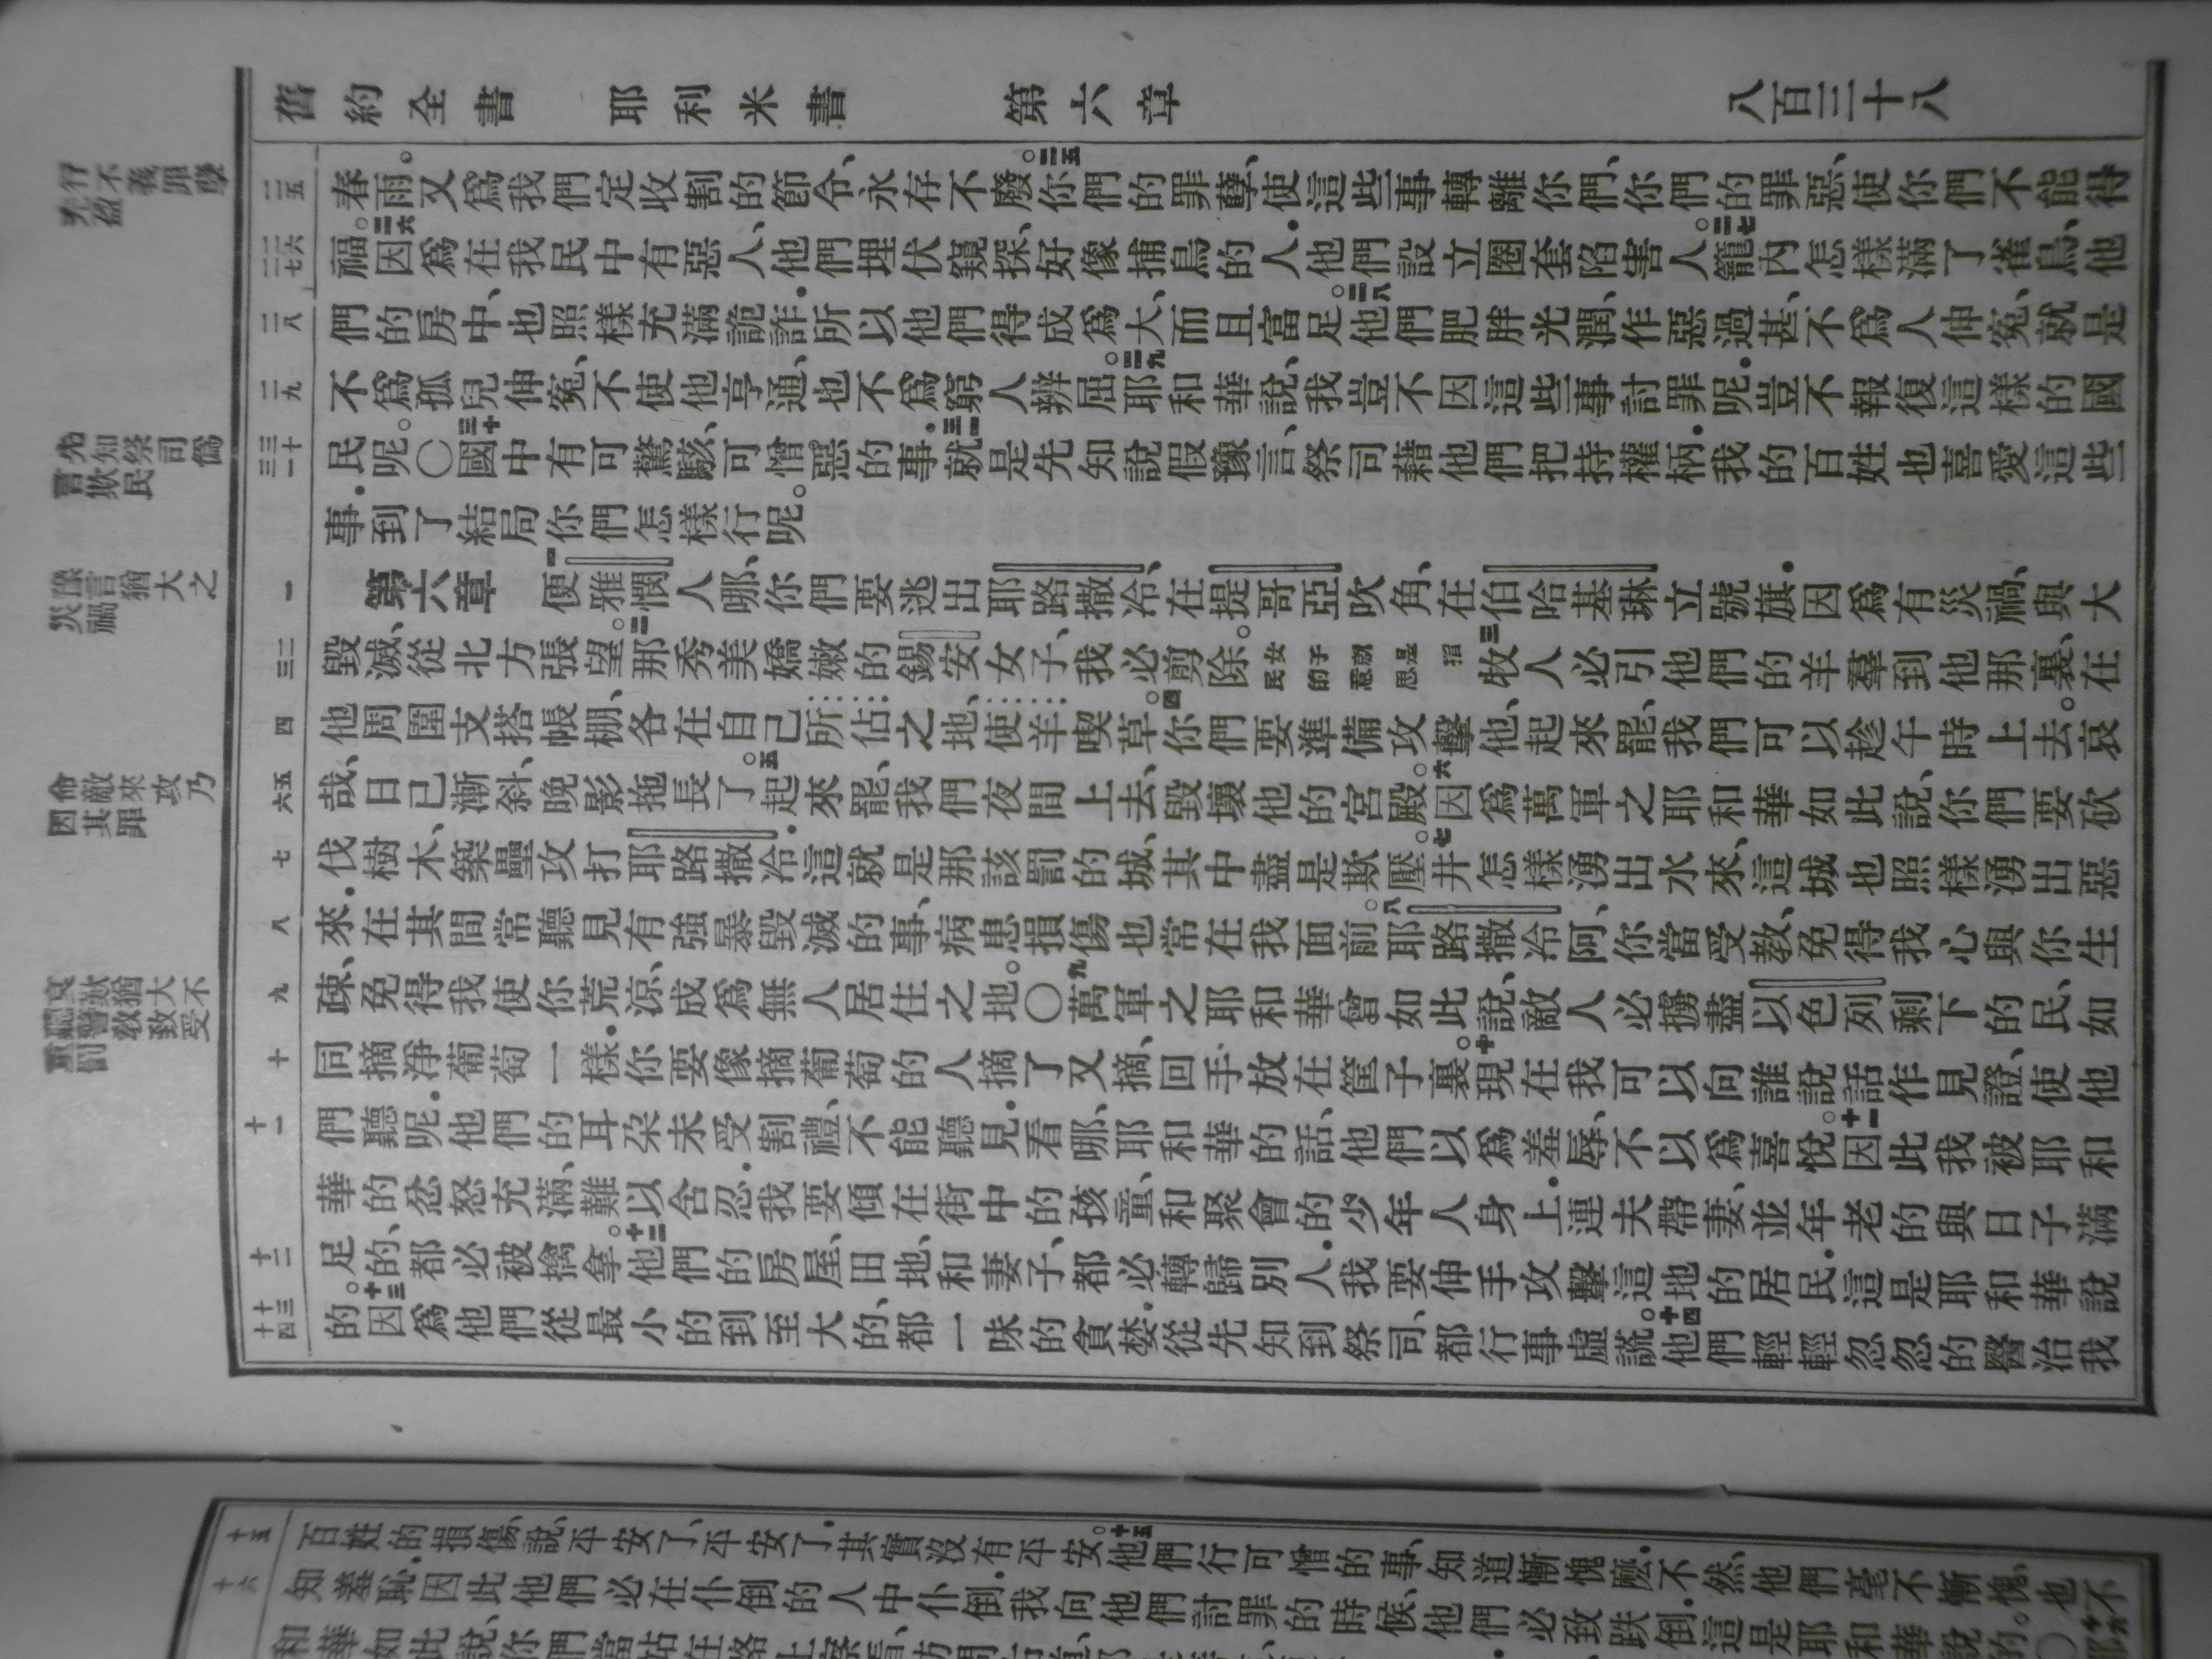 舊約全書 耶利米書 第六章 八百三十八
行不義罪孽
充盈
先知祭司僞
言欺民
豫言猶大之
災禍
命敵來攻乃
因其罪
哀歎猶大不
聽警教致受
重罰
二五
二六
二七
二八
二九
三十
三一
一
二
三
四
五
六
七
八
九
十
十一
十二
十三
十四
春雨。又爲我們定收割的節令、永存不廢。二五你們的罪孽、使這些事轉離你們、你們的罪惡、使你們不能得
福。二六因爲在我民中有惡人、他們埋伏窺探、好像捕鳥的人．他們設立圈套陷害人。二七籠內怎樣滿了雀鳥、他
們的房中、也照樣充滿詭詐．所以他們得成爲大、而且富足。二八他們肥胖光潤、作惡過甚、不爲人伸冤、就是
不爲孤兒伸冤、不使他亨通、也不爲窮人辨屈。二九耶和華說、我豈不因這些事討罪呢．豈不報復這樣的國
民呢。〇三十國中有可驚駭、可憎惡的事．三一就是先知說假豫言、祭司藉他們把持權柄．我的百姓也喜愛這些
事．到了結局你們怎樣行呢。
第六章 一便雅憫人哪、你們要逃出耶路撒冷、在提哥亞吹角、在伯哈基琳立號旗．因爲有災禍、與大
毀滅、從北方張望。二那秀美嬌嫩的錫安女子、我必剪除。女子就是指民的意思三牧人必引他們的羊羣到他那裏、在
他周圍支搭帳棚、各在自己所佔之地、使羊喫草。四你們要準備攻擊他、起來罷、我們可以趁午時上去。哀
哉、日已漸斜、晚影拖長了。五起來罷、我們夜間上去、毀壞他的宮殿。六因爲萬軍之耶和華如此說、你們要砍
伐樹木、築壘攻打耶路撒冷．這就是那該罰的城、其中盡是欺壓。七井怎樣湧出水來、這城也照樣湧出惡
來．在其間常聽見有強暴毀滅的事、病患損傷也常在我面前。八耶路撒冷阿、你當受教、免得我心與你生
疎、免得我使你荒涼、成爲無人居住之地。〇九萬軍之耶和華曾如此說、敵人必擄盡以色列剩下的民、如
同摘淨葡萄一樣．你要像摘葡萄的人摘了又摘、回手放在筐子裏。十現在我可以向誰說話作見證、使他
們聽呢．他們的耳朵未受割禮、不能聽見．看哪、耶和華的話、他們以爲羞辱、不以爲喜悅。十一因此我被耶和
華的忿怒充滿、難以含忍．我要傾在街中的孩童、和聚會的少年人身上．連夫帶妻、並年老的與日子滿
足的、都必被擒拿。十二他們的房屋、田地、和妻子、都必轉歸別人．我要伸手攻擊這地的居民．這是耶和華說
的。十三因爲他們從最小的到至大的、都一味的貪婪．從先知到祭司、都行事虛謊。十四他們輕輕忽忽的醫治我
十五
十六
百姓的損傷、說、平安了、平安了．其實沒有平安。十五他們行可憎的事、知道慚愧麼．不然、他們毫不慚愧、也不
知羞恥．因此他們必在仆倒的人中仆倒．我向他們討罪的時候、他們必致跌倒．這是耶和華說的。〇十六耶
和華如此說、你們當站在路上察看、訪問古道、